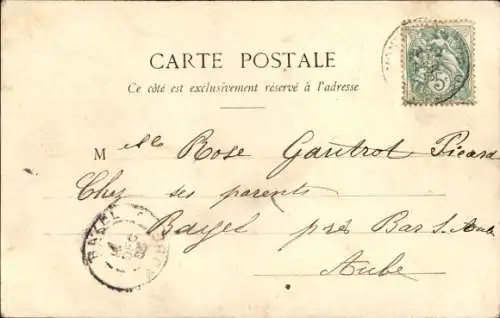 CARTE POSTALE
Ce côté est exclusivement réservé à l'adresse
Mlle Rose Gautrot Picard
Chez ses parents
Bayel près Bar S. Aube
Aube
BAYEL
5c